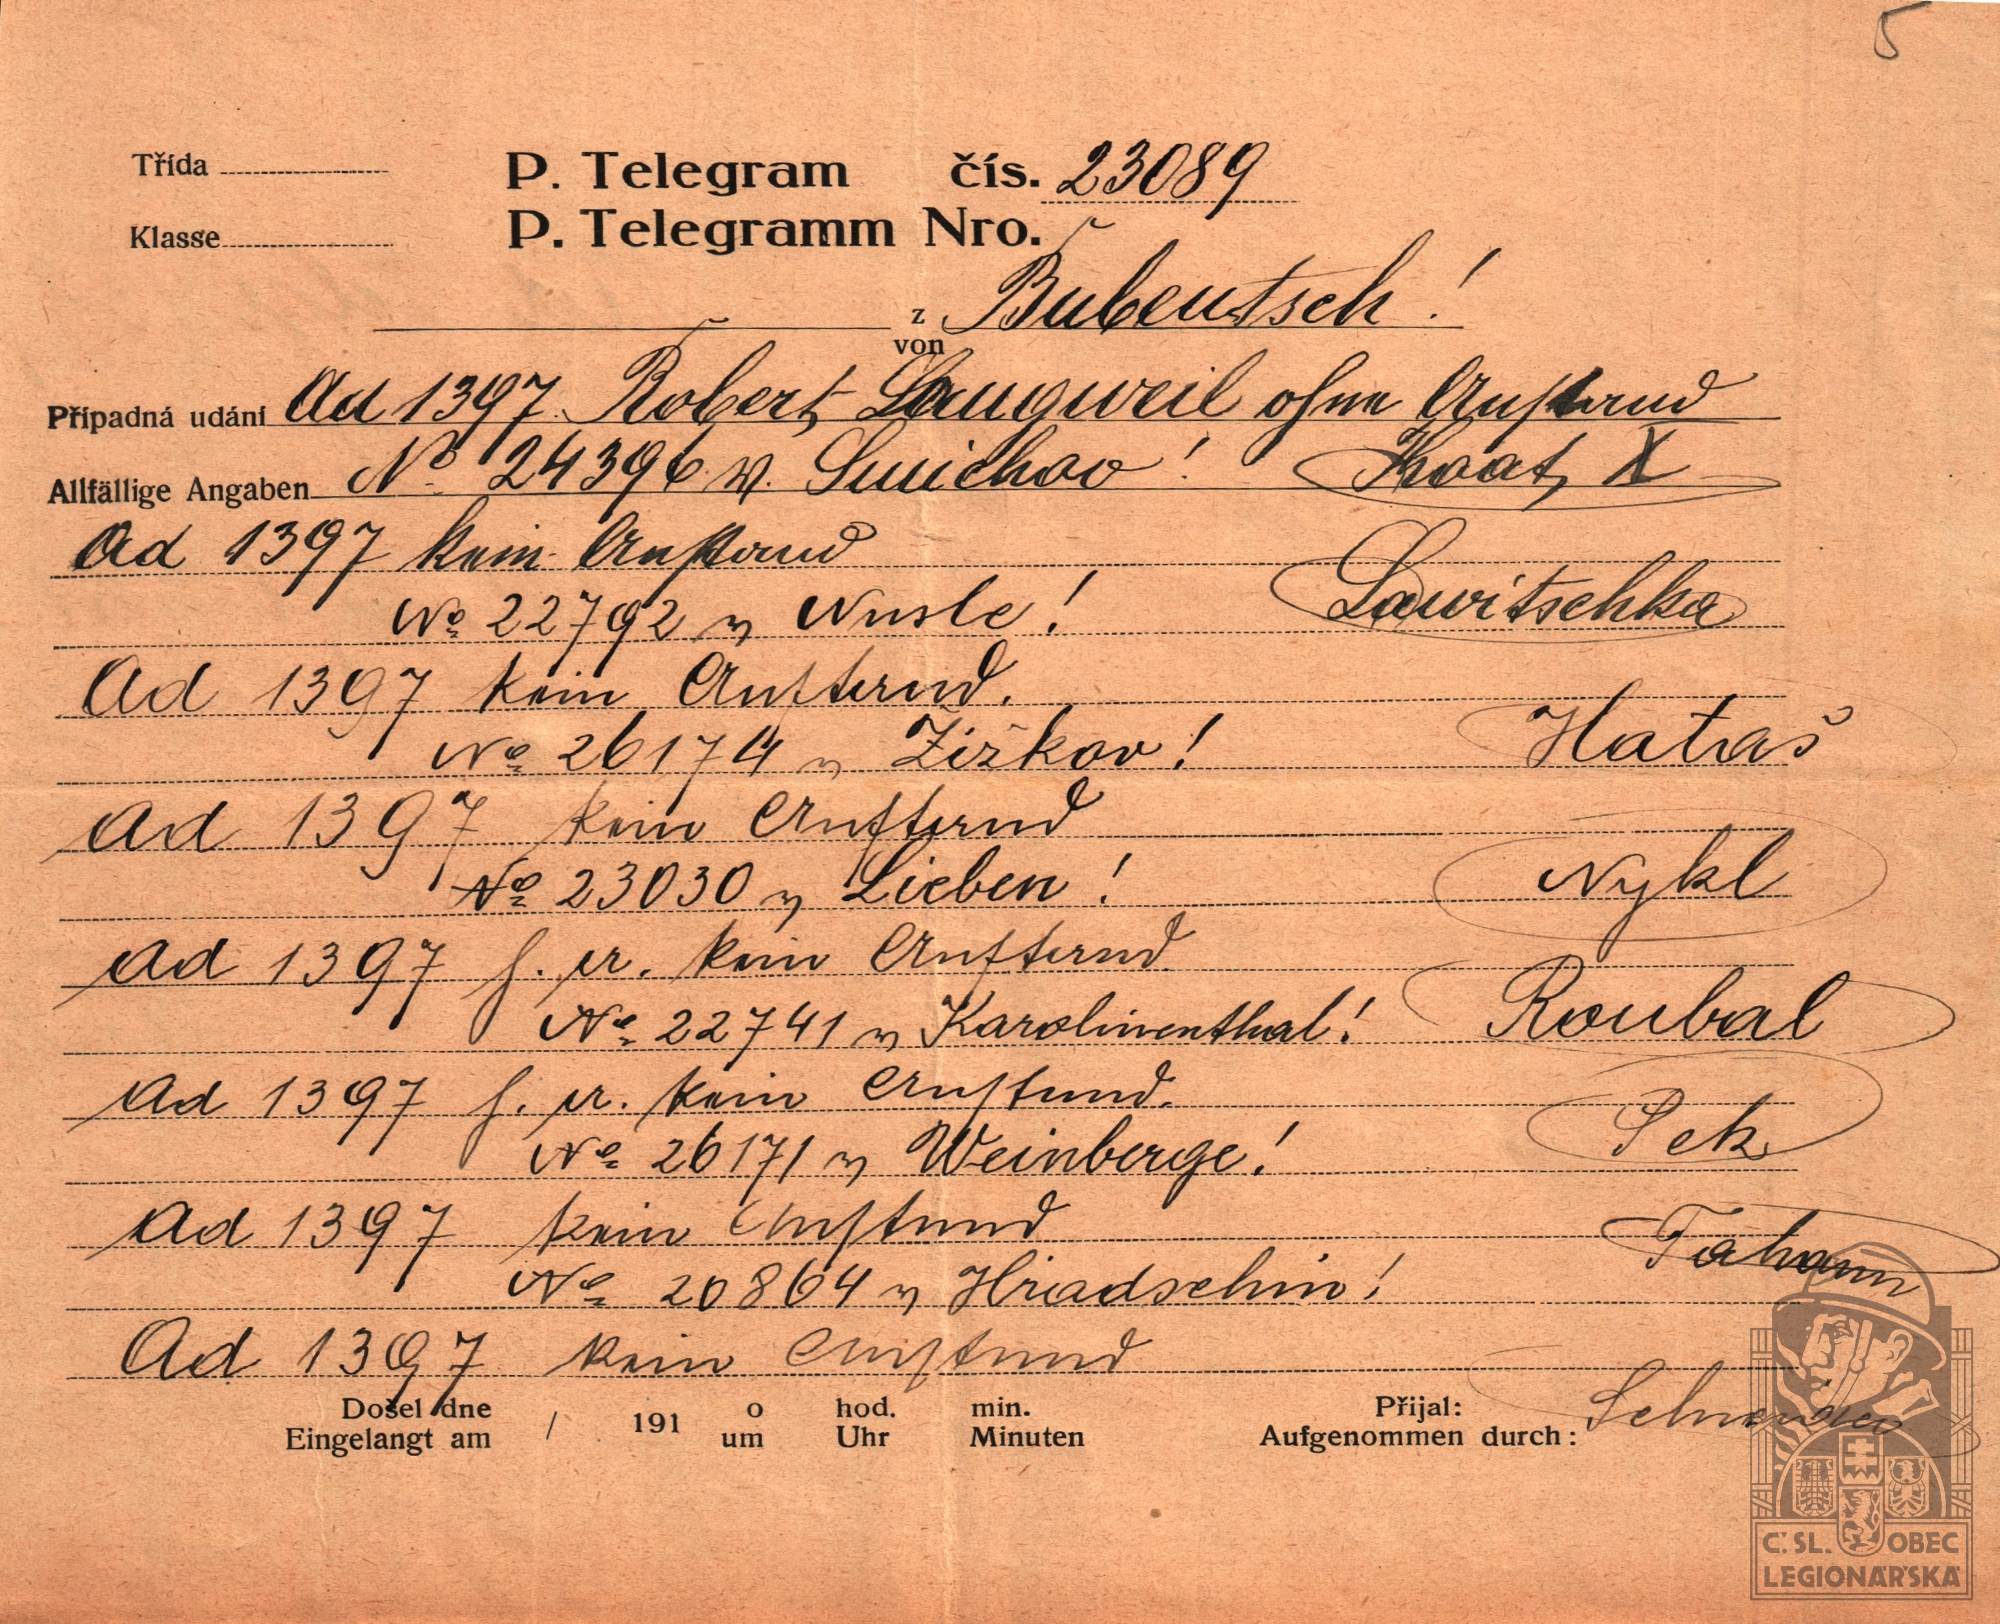 5
Třída P. Telegram čís. 23089
Klasse P. Telegramm Nro.
z von Bubentsch!
Případná udání Ad 1397 Robert Langweil ohne Anstand
Allfällige Angaben No 24396 v. Smichov! X
Ad 1397 kein Anstand Lawitschka
No 22792 v Nusle!
Ad 1397 kein Anstand.
No 26174 v Žižkov! Hataš
Ad 1397 kein Anstand
No 23030 v Lieben! Nykl
Ad 1397 h. a. kein Anstand
No 22741 v Karolinenthal! Roubal
Ad 1397 h. a. kein Anstand.
No 26171 v Weinberge! Sek
Ad 1397 kein Anstand
No 20864 v Hradschin!
Ad 1397 kein Anstand
Došel dne / 191 o hod. min. Přijal:
Eingelangt am um Uhr Minuten Aufgenommen durch:
Č. SL. OBEC
LEGIONÁŘSKÁ